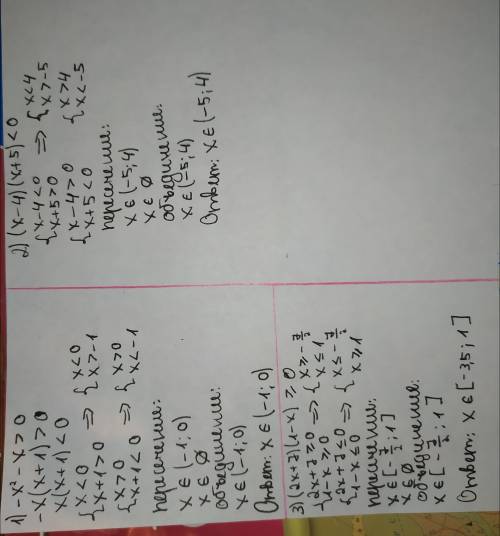 1) -x² - x > 0
-x(x+1) > 0
x(x+1) < 0
{ x < 0
{ x+1 > 0 ⇒ { x < 0
{ x > -1
{ x > 0
{ x+1 < 0 ⇒ { x > 0
{ x < -1
пересечение:
x ∈ (-1; 0)
x ∈ ∅
объединение:
x ∈ (-1; 0)
Ответ: x ∈ (-1; 0)
2) (x-4)(x+5) < 0
{ x-4 < 0
{ x+5 > 0 ⇒ { x < 4
{ x > -5
{ x-4 > 0
{ x+5 < 0 { x > 4
{ x < -5
пересечение:
x ∈ (-5; 4)
x ∈ ∅
объединение:
x ∈ (-5; 4)
Ответ: x ∈ (-5; 4)
3) (2x+7)(1-x) ≥ 0
{ 2x+7 ≥ 0
{ 1-x ≥ 0 ⇒ { x ≥ -7/2
{ x ≤ 1
{ 2x+7 ≤ 0
{ 1-x ≤ 0 ⇒ { x ≤ -7/2
{ x ≥ 1
пересечение:
x ∈ [-7/2; 1]
x ∈ ∅
объединение:
x ∈ [-7/2; 1]
Ответ: x ∈ [-3,5; 1]